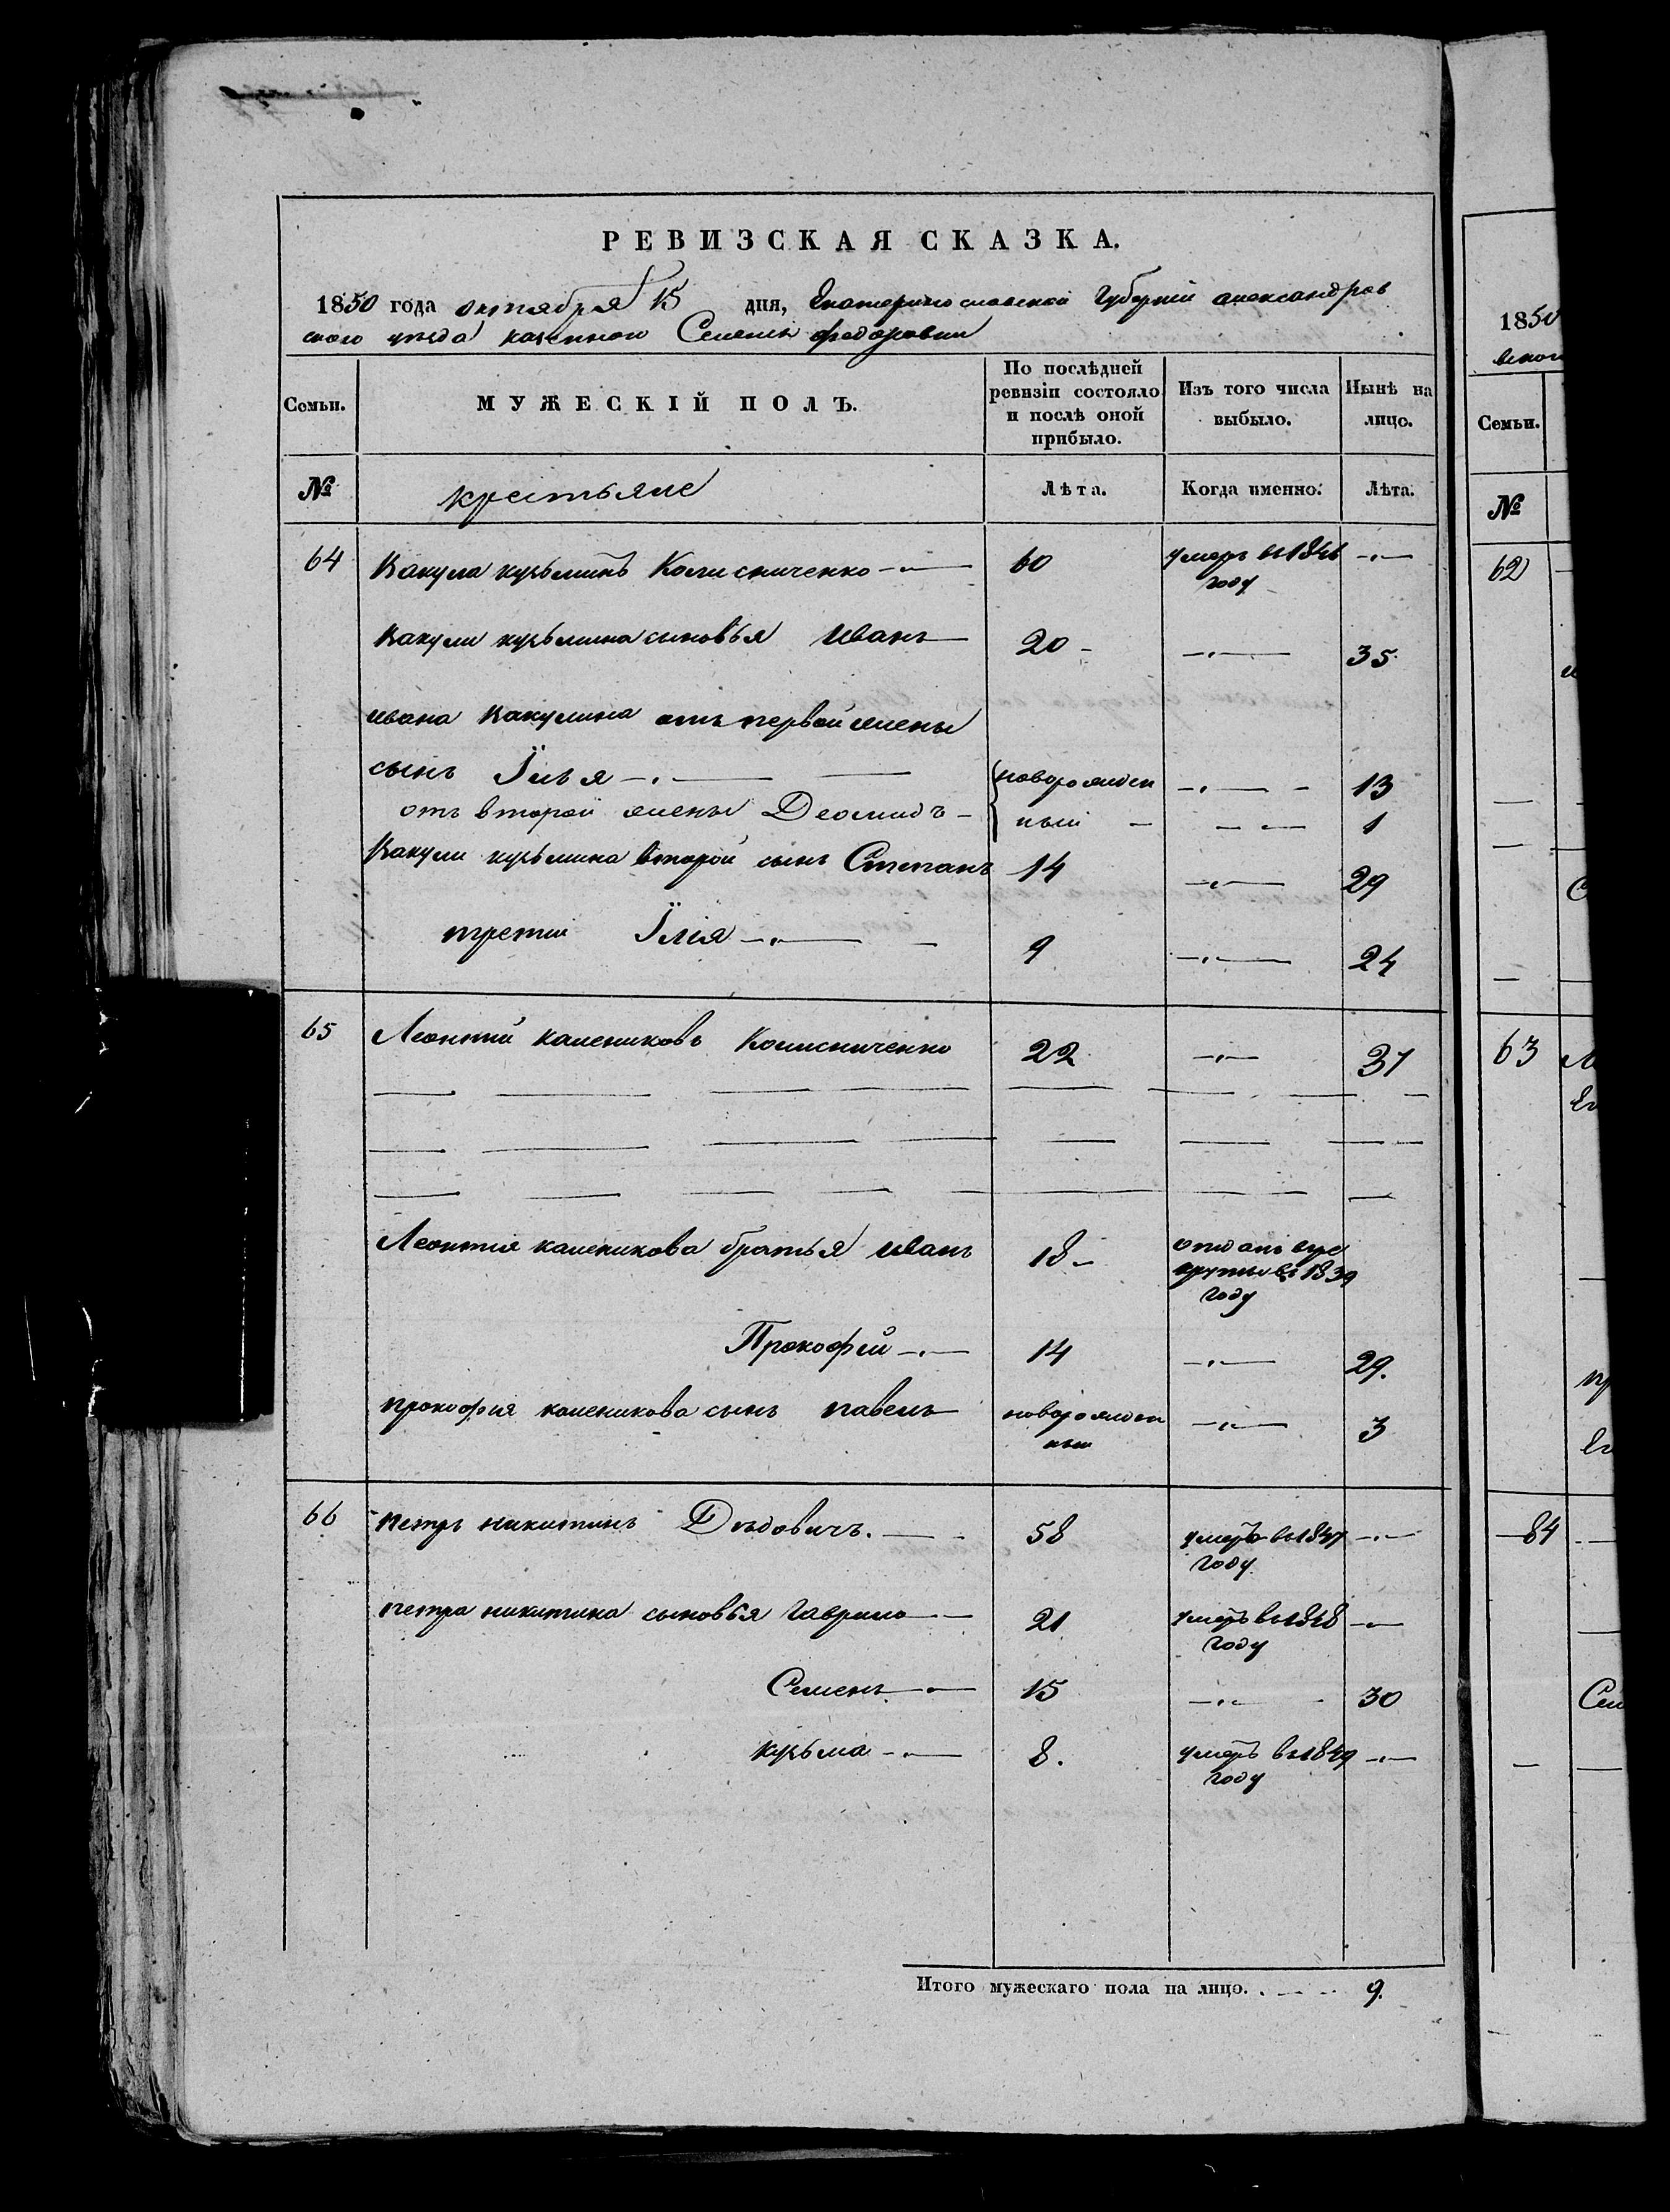 РЕВИЗСКАЯ СКАЗКА.
1850 года октября 15 дня, Екатеринославской Губернии александров
ского уезда казенной Селенья федоровки
Семьи. МУЖЕСКІЙ ПОЛЪ. По послѣдней ревизіи состояло и послѣ оной прибыло. Изъ того числа выбыло. Нынѣ на лицо.
№ крестьяне Лѣта. Когда именно. Лѣта.
64 Вакула кузьминъ Колисниченко 60 умеръ въ 1846 году
Вакули кузьмина сыновья Иванъ 20 35
ивана Вакулина отъ первой жены
сынъ Їлья новорожден 13
отъ второй жены Деомидъ ный 1
Вакули кузьмина второй сынъ Степанъ 14 29
третій Їлія 9 24
65 Леонтий калениковъ Колисниченко 22 37
Леонтия каленикова братья иванъ 18 отданъ въре круты въ 1839 году
Прокофий 14 29.
прокофия каленикова сынъ павелъ новорожден ный 3
66 петръ никитинъ Дѣдовичъ. 58 умеръ въ 1847 году.
петра никитина сыновья гаврило 21 умеръ въ 1848 году
Семенъ 15 30
кузьма 8. умеръ въ 1849 году
Итого мужескаго пола на лицо. 9.
1850
Семьи.
№
62
63
84